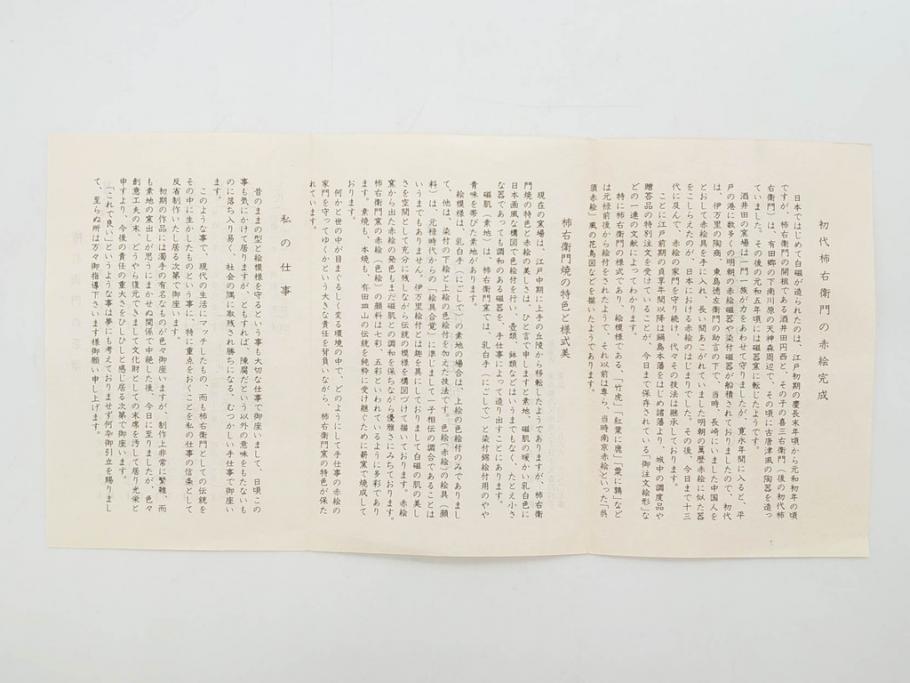 初代柿右衛門の赤絵完成
日本ではじめて白磁が造られたのは、江戸初期の慶長末年頃から元和初年の頃
ですが、柿右衛門の開祖である酒井田円西と、その子の喜三右衛門（後の初代柿
右衛門）は、有田郷の下南川原の天神森周辺で、その頃に古唐津風の陶器を造っ
ていました。その後の元和五年頃には磁器窯に転じたようです。
酒井田の窯場は一門一族が力をあわせて守りましたが、寛永年間に入ると、平
戸の港に数多くの明朝の赤絵磁器や染付磁器が船積されておりましたので、初代
は、伊万里の陶商、東島徳左衛門の助言の下で、当時、長崎にいました中国人を
とおして赤絵具を手に入れ、長い間あこがれていました明朝の萬暦赤絵に似た器
をこしらえたのが、日本における赤絵のはじまりでした。その後、今日まで十三
代に及んで、赤絵の家門を守り続け、代々その技法は継承しております。
ことに江戸前期の貞享年間以降は鍋島本藩をはじめ諸藩より、城中の調度品や
贈答品の特別注文を受けていることが、今日まで保存されている「御注文絵形」な
どの一連の文献によってわかります。
特に柿右衛門の様式であり、絵模様である、「竹虎」「紅葉に鹿」「粟に鶉」など
は元禄前後から絵付をされたようで、それ以前は専ら、当時南京赤絵といった「呉
須赤絵」風の花鳥図などを描いたようであります。
柿右衛門焼の特色と様式美
現在の窯場は、江戸中期に上手の丘陵から移転したようでありますが、柿右衛
門焼の特色と赤絵の美しさは、ひと言で申しますと素地、磁肌の暖かい乳白色に
日本画風な構図で色絵付を行い、壷類、鉢類などはいうまでもなく、たとえ小さ
な器であっても調和のある磁器を、手仕事によって造り出すことにあります。
磁肌（素地）は、柿右衛門窯では、乳白手（にごしで）と染付錆絵付用のやや
青味を帯びた素地があります。
絵模様は、乳白手（にごしで）の素地の場合は、上絵の色絵付のみでありまし
て、他は、染付の下絵と上絵の色絵付を加えた技法です。色絵（赤絵）の絵具（顔
料）は、元禄時代からの「絵具合覚」に準じまして一子相伝の調合であることは
いうまでもありません。伊万里絵付とは趣を異にしておりまして白磁の肌の美し
さを空間として充分に残しながら伝統の模様を構図づけて描いております。赤絵
窯から出た赤絵の発色もまた磁肌との調和を保ちながら優雅さにみちております。
柿右衛門窯の赤絵（色絵）の顔料は七彩、五彩といわれているように多彩であり
ます。素焼も、本焼も、有田皿山の伝統を純粋に受け継ぐために薪窯で焼成して
おります。
何かと世の中が目まぐるしく変る環境の中で、どのようにして手仕事の赤絵の
家門を守ってゆくかという大きな責任を背負いながら、柿右衛門窯の特色が保た
れています。
私の仕事
昔のままの型と絵模様を守るという事も大切な仕事で御座いまして、日頃この
事も気にかけて居りますが、ともすれば、陳腐だという以外の意味をもたないも
のに落ち入り易く、社会の隅に取残され勝ちになる、むつかしい手仕事で御座い
ます。
このような事で、現代の生活にマッチしたもの、而も柿右衛門としての伝統を
その中に生かしたものという事に、特に重点をおくことを私の仕事の信条として
反省制作いたし居る次第で御座います。
初期の作品には濁手の有名なものが色々御座いますが、制作上非常に繁雑、而
も素地の窯出しが思うにまかせぬ関係で中絶した後、今日に至りましたが、色々
創意工夫の末、どうやら復元できまして文化財としての末席を汚して居り光栄と
申すより、今後の責任の重大さをひしひしと感じ居る次第で御座います。
「これで良い」というような事は夢にも考えておりませず何卒御引立を賜りまし
て、至らぬ所は万々御指導下さいます様御願い申し上げます。